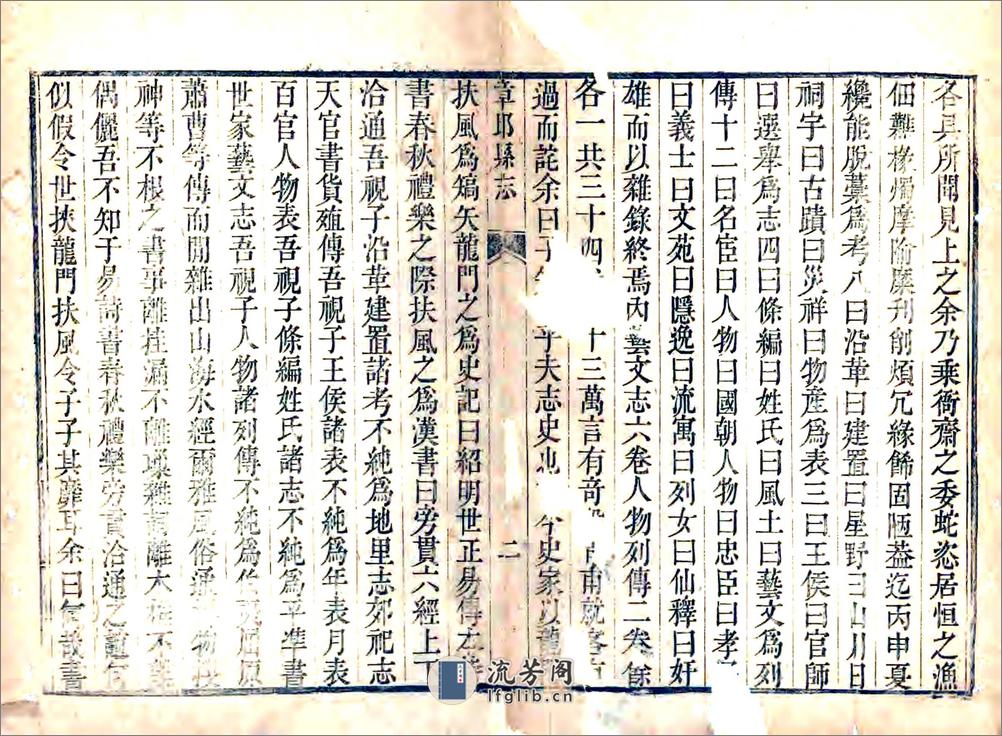 各具所聞見上之余乃乘衙齋之委蛇恣居恒之漁
佃難椽燭摩隃麋刋削煩冗緣餙固陋葢迄丙申夏
纔能脫藁爲考八曰沿革曰建置曰星野曰山川曰
祠宇曰古蹟曰災祥曰物產爲表三曰王侯曰官師
曰選舉爲志四曰條編曰姓氏曰風土曰藝文爲列
傳十二曰名宦曰人物曰國朝人物曰忠臣曰孝
曰義士曰文苑曰隱逸曰流寓曰列女曰仙釋曰奸
雄而以雜錄終焉內藝文志六卷人物列傳二卷餘
各一共三十四 十三萬言有奇 甫就客
過而詫余曰子 乎夫志史也 今史家以龍
章邱縣志
二
扶風爲矯矢龍門之爲史記曰紹明世正易傳本詩
書春秋禮樂之際扶風之爲漢書曰旁貫六經上下
洽通吾視子沿革建置諸考不純爲地里志郊祀志
天官書貨殖傳吾視子王侯諸表不純爲年表月表
百官人物表吾視子條編姓氏諸志不純爲平準書
世家藝文志吾視子人物諸列傳不純爲 屈原
蕭曹等傳而間雜出山海水經爾雅風俗通 物
神等不根之書事離挂漏不離 雜 離 不
偶儷吾不知于易詩書春秋禮樂旁貫洽通之 何
似假令世挾龍門扶風令子子其靡耳余曰 哉書
流芳阁
lfglib.cn